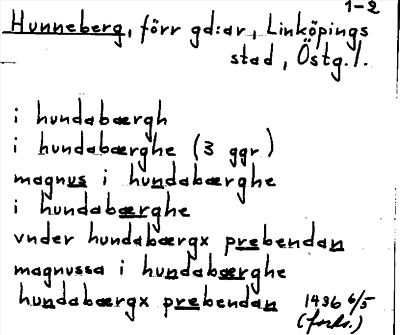 1-2
Hunneberg, förr gd:ar, Linköpings
stad, Östg.l.
i hundabærgh
i hundabærghe (3 ggr)
magnus i hundabærghe
i hundabærghe
vnder hundabærgx prebendan
magnussa i hundabærghe
hundabærgx prebendan 1436 6/5
(forts.)